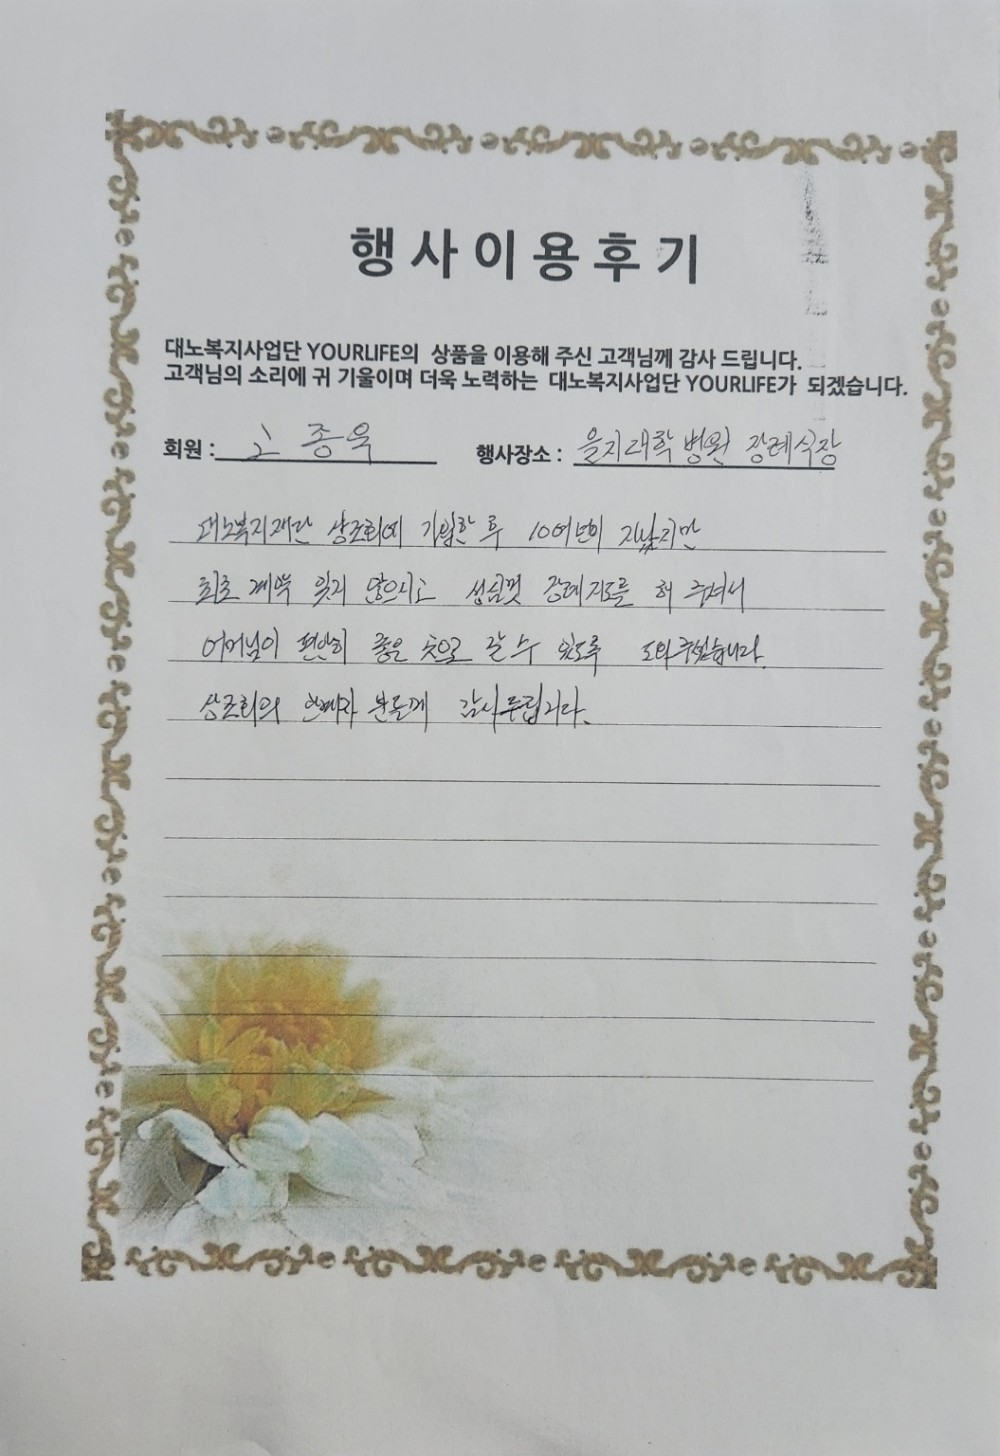 행사이용후기
대노복지사업단 YOURLIFE의 상품을 이용해 주신 고객님께 감사 드립니다.
고객님의 소리에 귀 기울이며 더욱 노력하는 대노복지사업단 YOURLIFE가 되겠습니다.
회원 : 고종욱 행사장소 : 을지대학병원 장례식장
대노복지재단 상조회에 가입한 후 10여년이 지났지만
최초 계약 잊지 않으시고 성심껏 장례지도를 해 주셔서
어머님이 편안히 좋은 곳으로 갈 수 있도록 도와주셨습니다.
상조회의 관계자 분들께 감사드립니다.